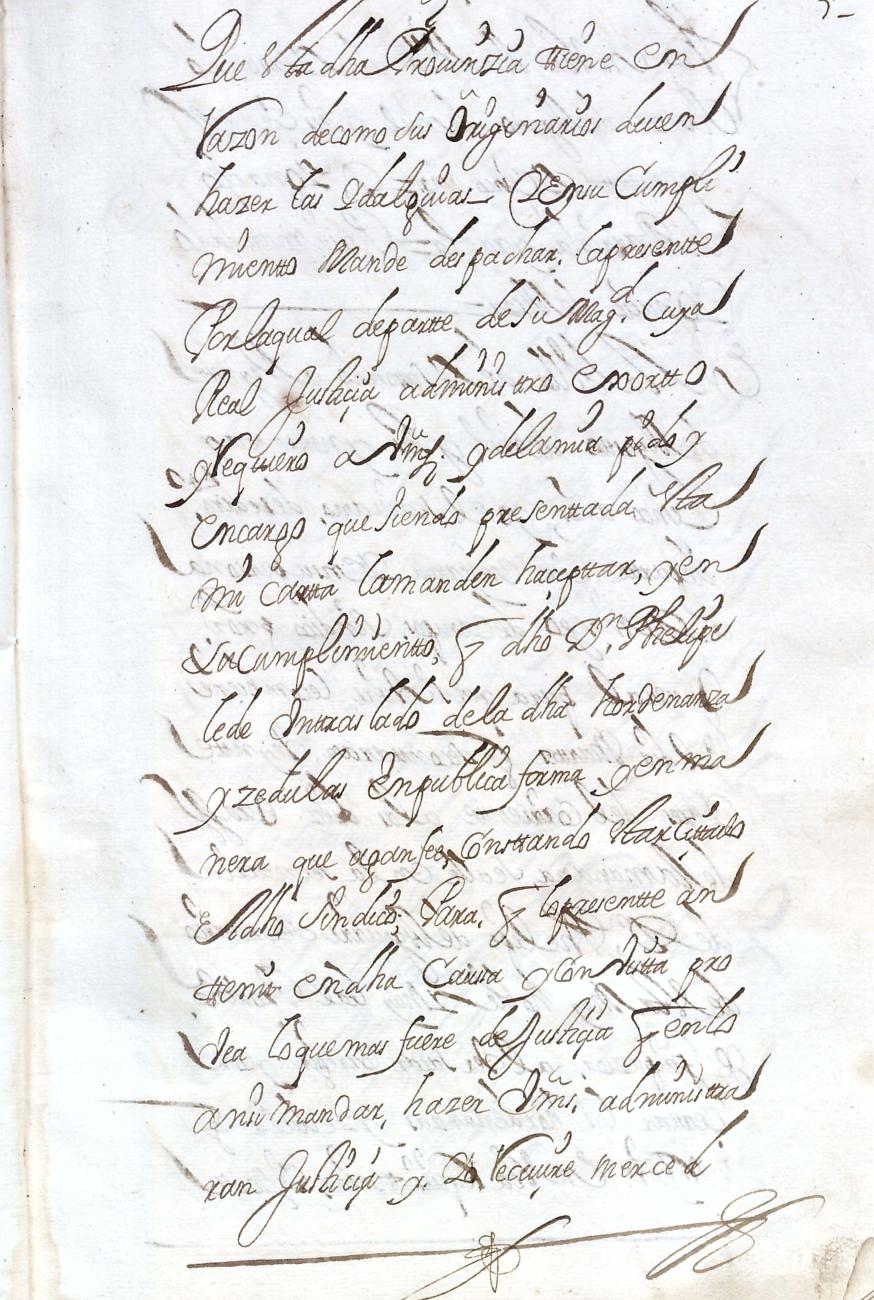 Que Sta dha Provinzia ttiene en
Razon decomo sus Originarios deven
hazer las Ydalguias Y Ensu Cumpli
miento Mande despachar, lapresentte
Por laqual departte de Su Magd. Cuya
Real Justicia administro Exortto
y Requiero a Vms. y delamia pido y
encargo que siendo presenttada Sta
mi Cartta lamanden haceptar, y en
Su Cumplimientto, dho Dn. Phelipe
lede Un traslado dela dha hordenanza
y zedulas En publica forma, y en ma
nera que agan fee, Consttando Star Cittado
El dho Sindico, Para, q lo presentte an
tte mi en dha Caussa y Con Vistta pro
vea lo que mas fuere de Justicia q en lo
ansi mandar, hazer Vms. administra
ran Justicia y. Yo Recivire merced